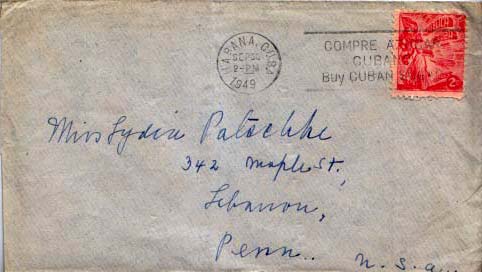 HABANA, CUBA
SEP30
2-PM
1949
COMPRE
CUBAN
Buy CUBAN
Miss Lydia Patochke
342 Maple St.,
Lebanon,
Penn.. U.S.A.